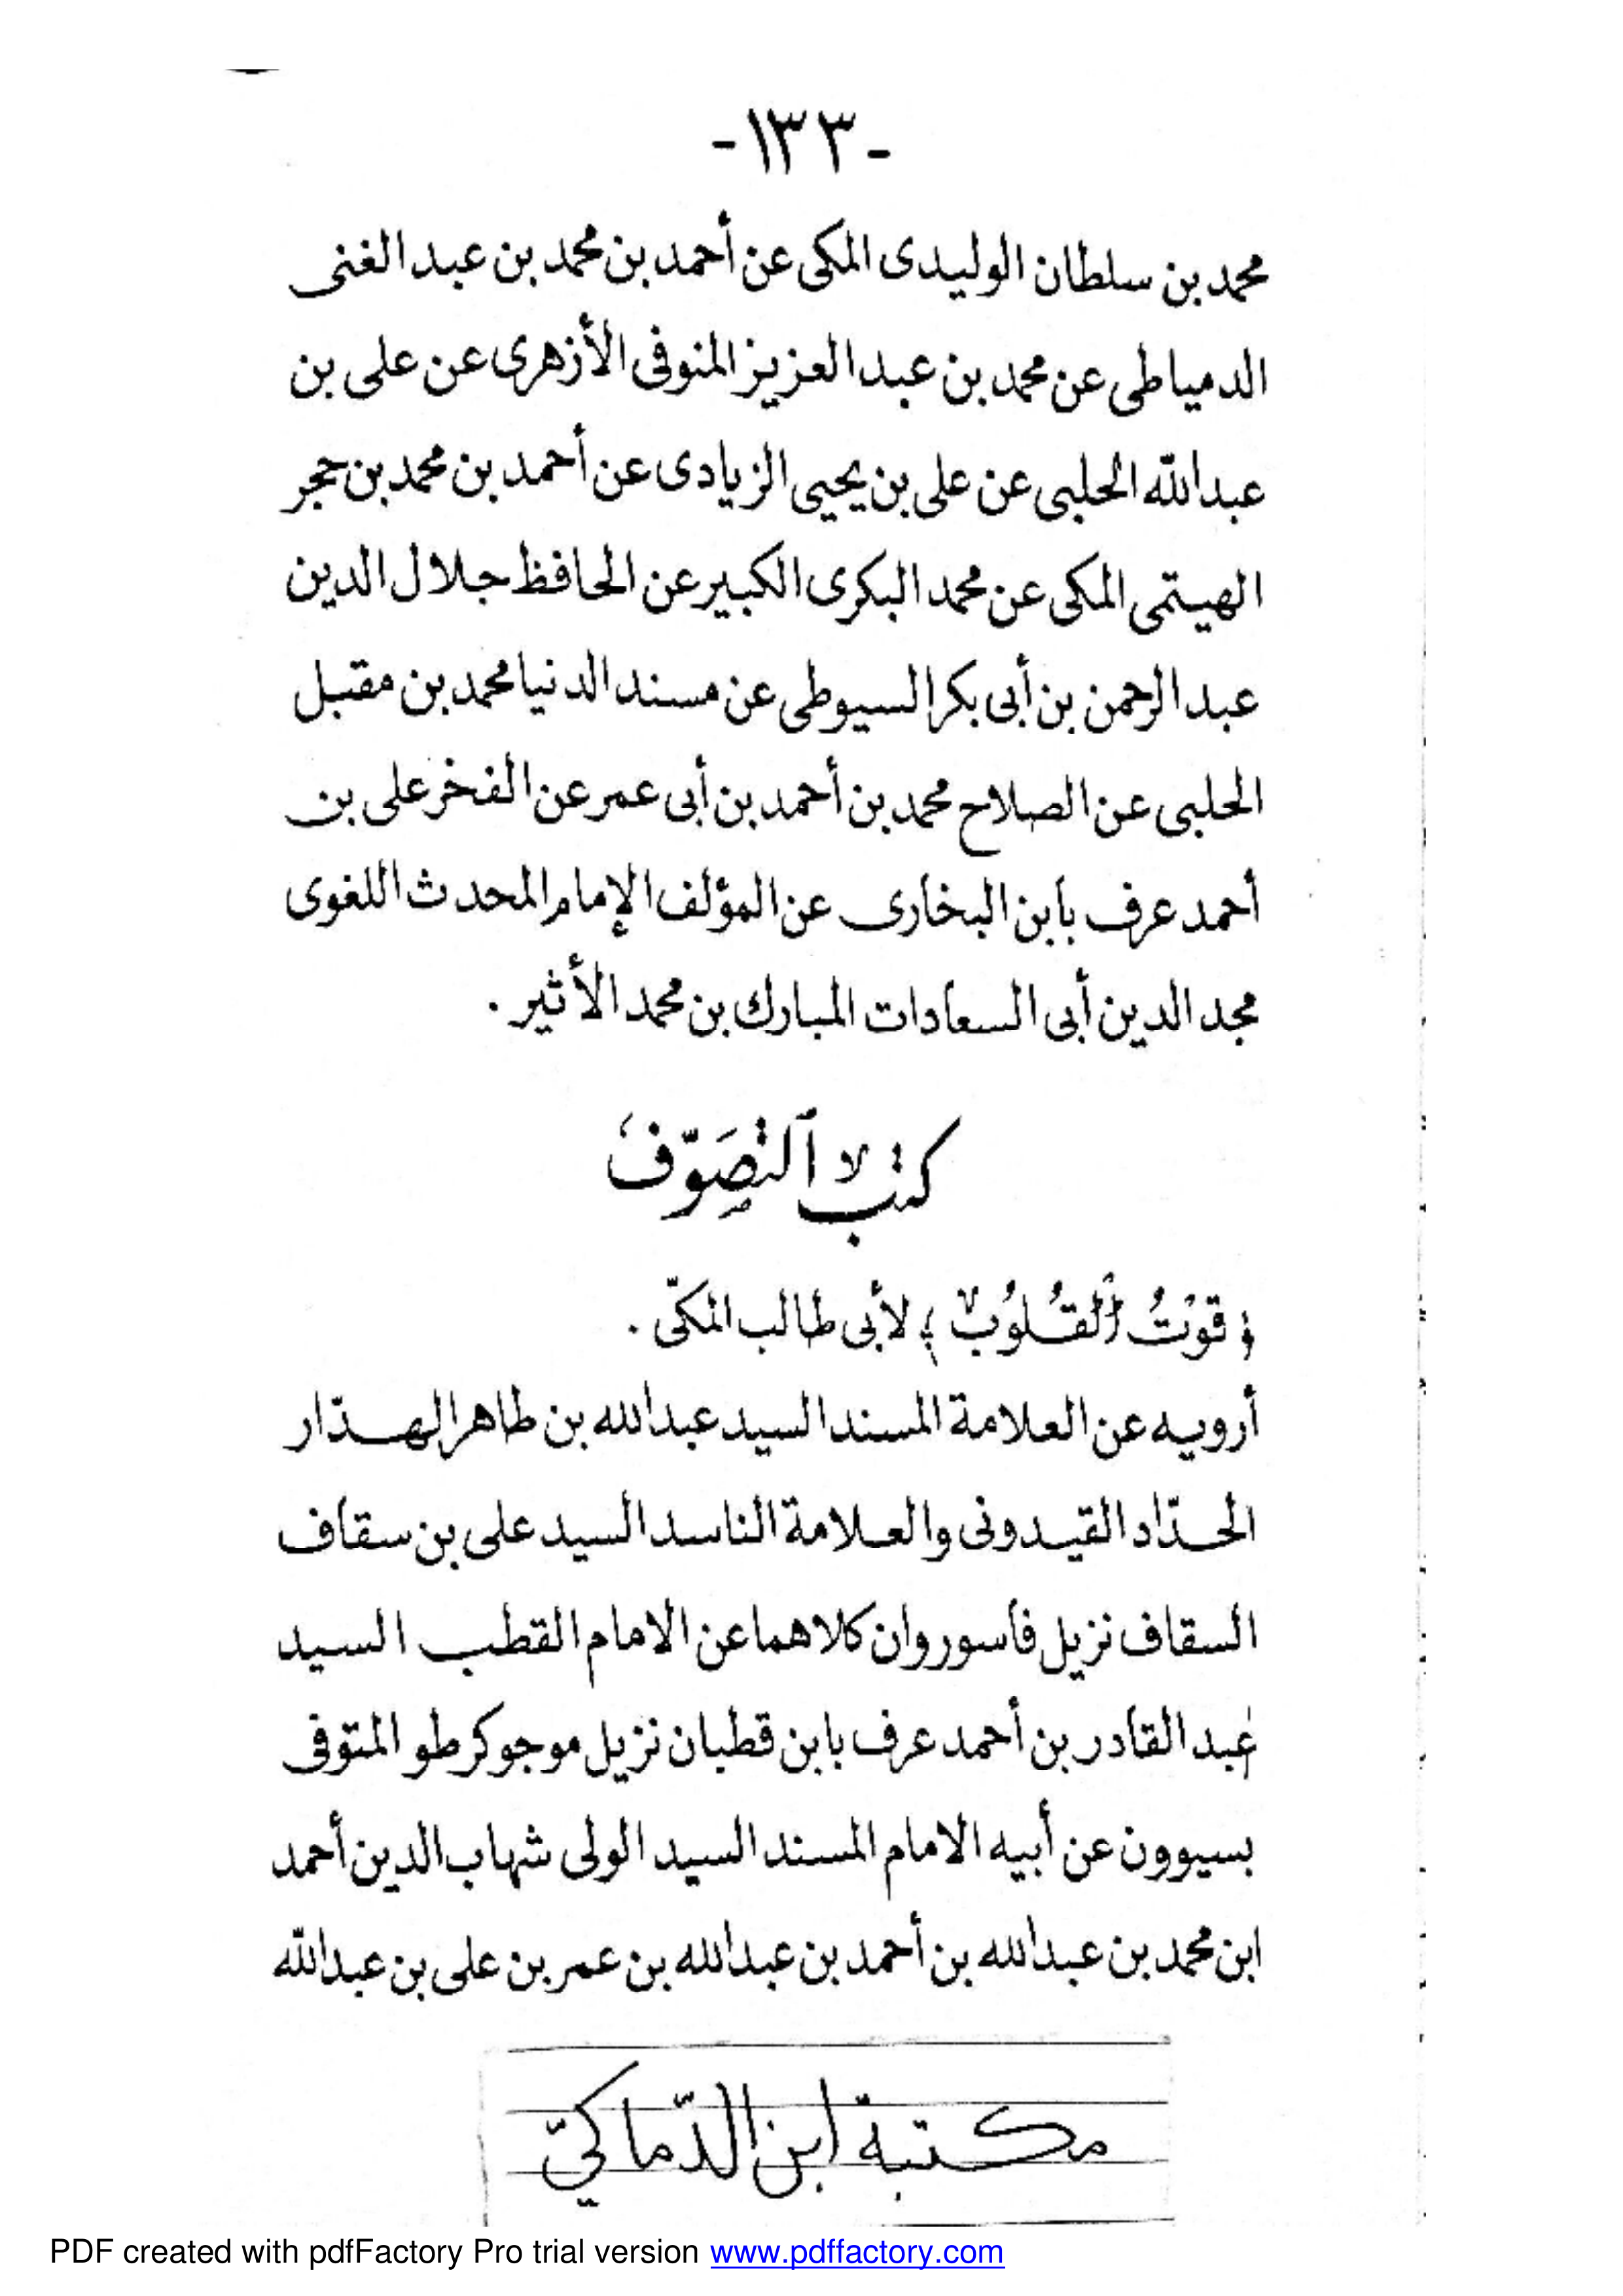 -١٣٣-
محمد بن سلطان الوليدى المكى عن أحمد بن محمد بن عبد الغنى
الدمياطى عن محمد بن عبد العزيز المنوفى الأزهرى عن على بن
عبد الله الحلبى عن على بن يحيى الزيادى عن أحمد بن محمد بن حجر
الهيتمى المكى عن محمد البكرى الكبير عن الحافظ جلال الدين
عبد الرحمن بن أبى بكر السيوطى عن مسند الدنيا محمد بن مقبل
الحلبى عن الصلاح محمد بن أحمد بن أبى عمر عن الفخر على بن
أحمد عرف بابن البخارى عن المؤلف الإمام المحدث اللغوى
مجد الدين أبى السعادات المبارك بن محمد الأثير .
كتب التصوّف
﴿ قوْتُ القُلُوب ﴾ لأبى طالب المكىّ .
أرويه عن العلامة المسند السيد عبد الله بن طاهر الهدّار
الحدّاد القيدونى والعلامة الناسد السيد على بن سقاف
السقاف نزيل فاسوروان كلاهما عن الامام القطب السيد
عبد القادر بن أحمد عرف بابن قطبان نزيل موجوكرطو المتوفى
بسيوون عن أبيه الامام المسند السيد الولى شهاب الدين أحمد
ابن محمد بن عبد الله بن أحمد بن عبد الله بن عمر بن على بن عبد الله
مكتبة ابن الدّماكيّ
PDF created with pdfFactory Pro trial version www.pdffactory.com